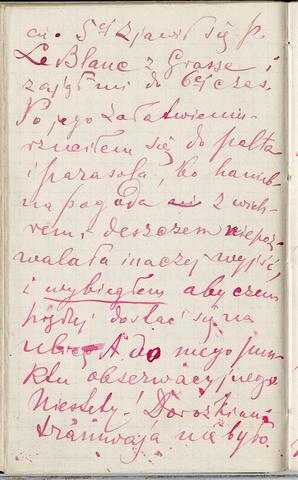 ci. O 5ej zjawił się p.
LeBlanc z Grasse i
zajął mi do 6ej czas.
Po jego załatwieniu
rzuciłem się do palta
i parasola, bo hanieb-
na pogoda z wich-
rem i deszczem niepoz-
walała inaczej wyjść,
i wybiegłem aby czem
prędzej dostać się na
ulicę A do mego pun-
ktu obserwacyjnego.
Niestety! Dorożki ani
tramwaja nie było.